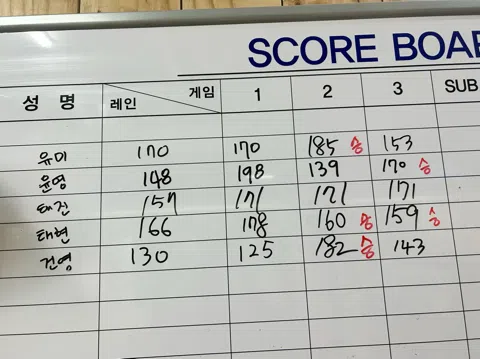 SCORE BOA
성 명 레인 게임 1 2 3 SUB
유미 170 170 185 승 153
윤영 148 198 139 170 승
태진 157 171 171 171
태현 166 178 160 승 159 승
건영 130 125 182 승 143